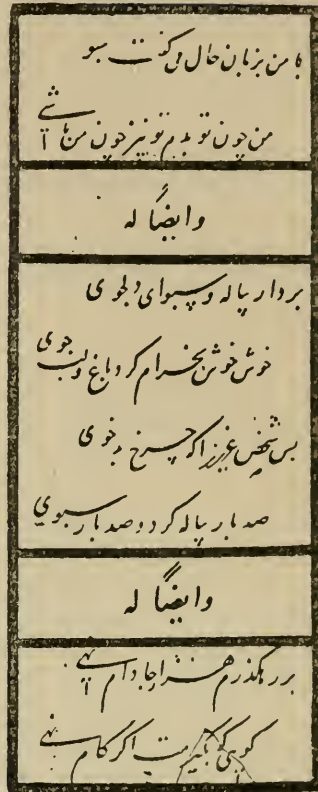 با من بزبان حال می گفت سبو
من چون تو بدم تو نیز چون من باشی
وایضاً له
بردار پیاله و سبوای دلجوی
خوش خوش بخرام گرد باغ و لب جوی
بس شخص عزیز را که چرخ بدخوی
صد بار پیاله کرد و صد بار سبوی
وایضاً له
بر رهگذرم هزار جا دام نهی
گویی که بگیرمت اگر گام نهی